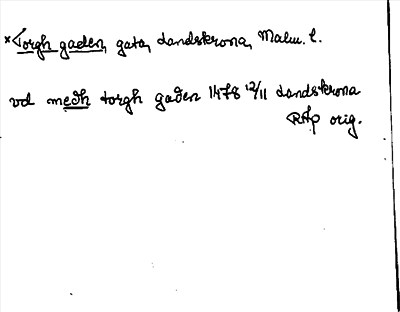 ×Torgh gaden, gata, Landskrona, Malm. l.
vd medh torgh gaden 1478 12/11 Landskrona
RAp orig.